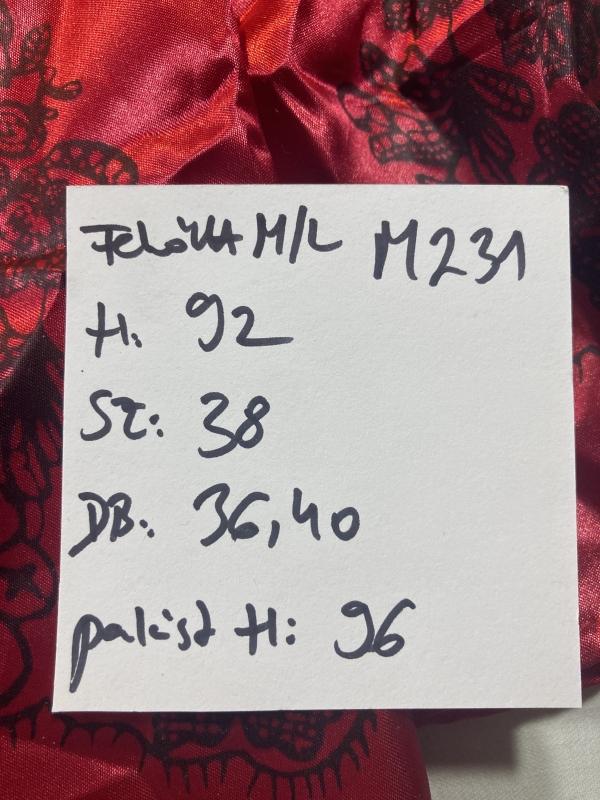 Felőtt M/L M231
H: 92
SZ: 38
DB: 36,40
palást H: 96